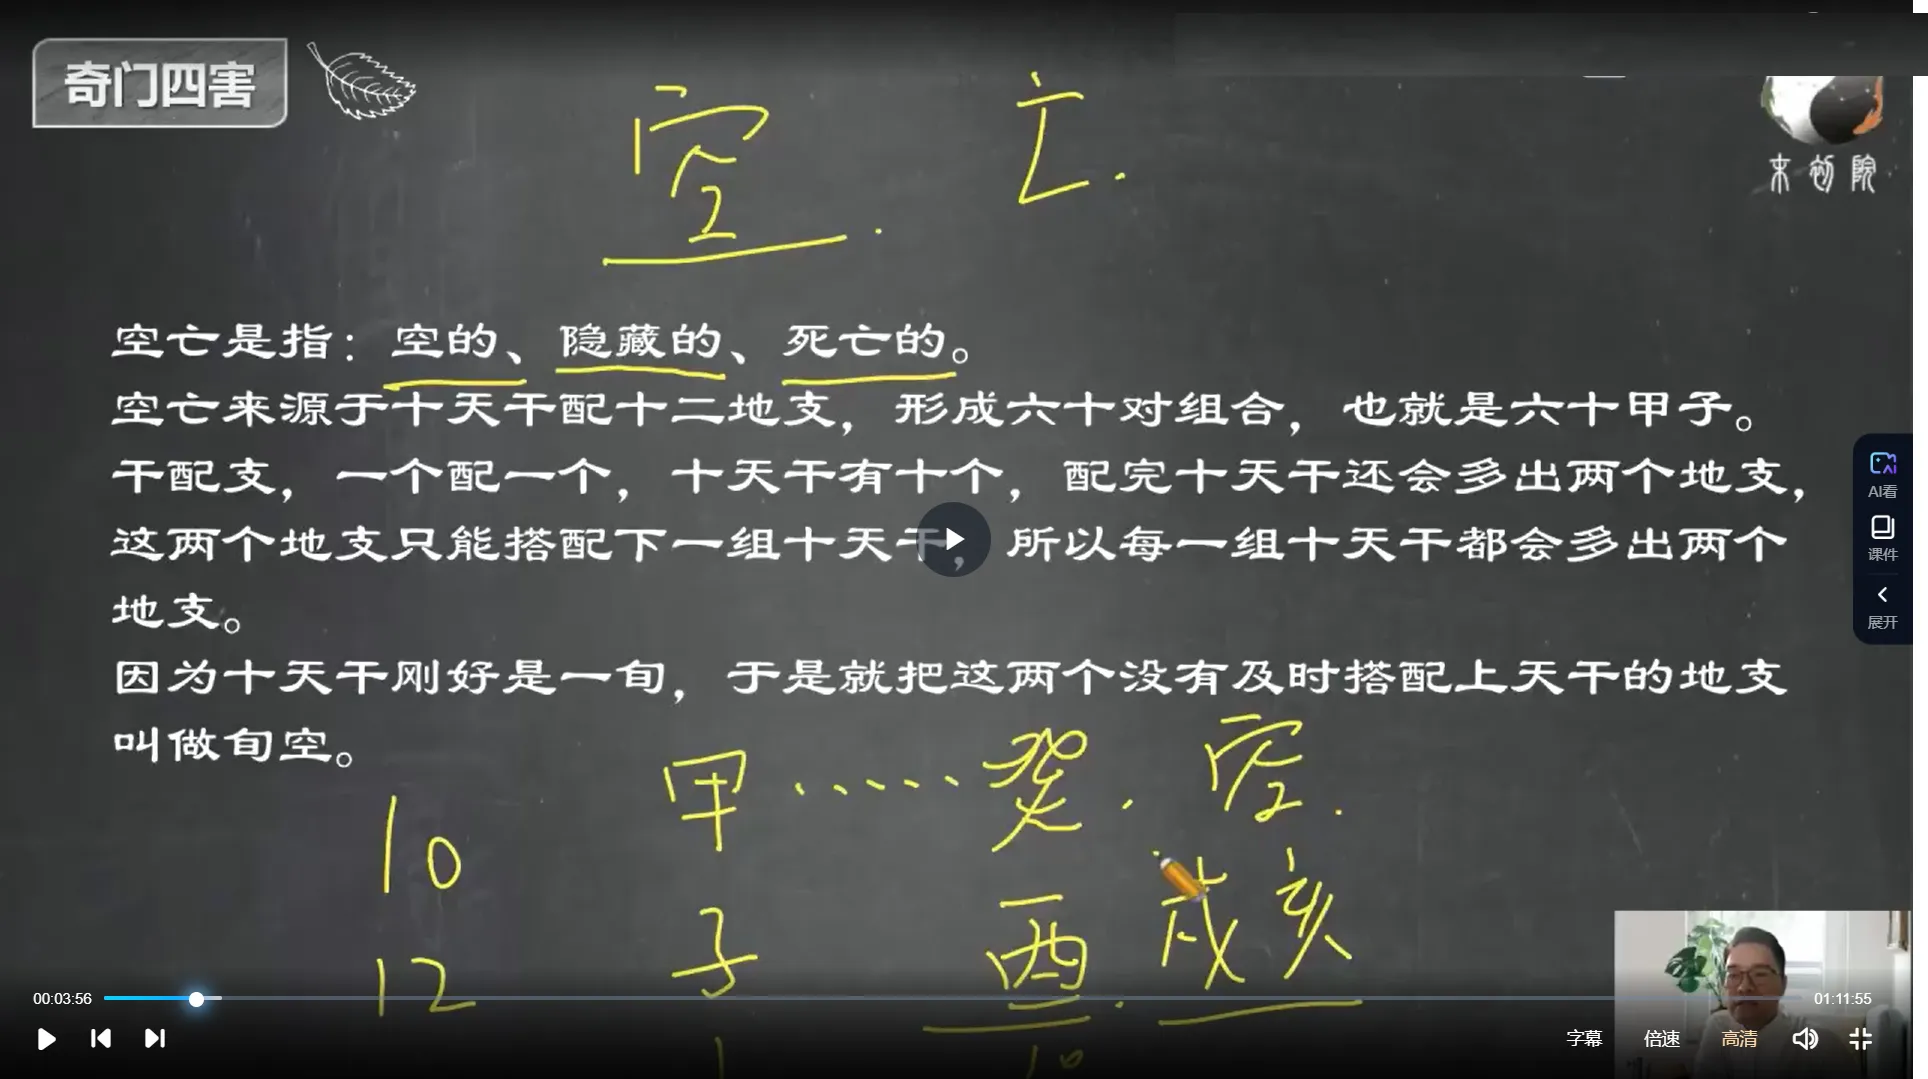 奇门四害
空 亡.
未初院
空亡是指：空的、隐藏的、死亡的。
空亡来源于十天干配十二地支，形成六十对组合，也就是六十甲子。
干配支，一个配一个，十天干有十个，配完十天干还会多出两个地支，
这两个地支只能搭配下一组十天干，所以每一组十天干都会多出两个
地支。
因为十天干刚好是一旬，于是就把这两个没有及时搭配上天干的地支
叫做旬空。
甲……癸. 空.
10
子 酉. 戌亥
12
1 10
AI看
课件
展开
00:03:56
01:11:55
字幕 倍速 高清